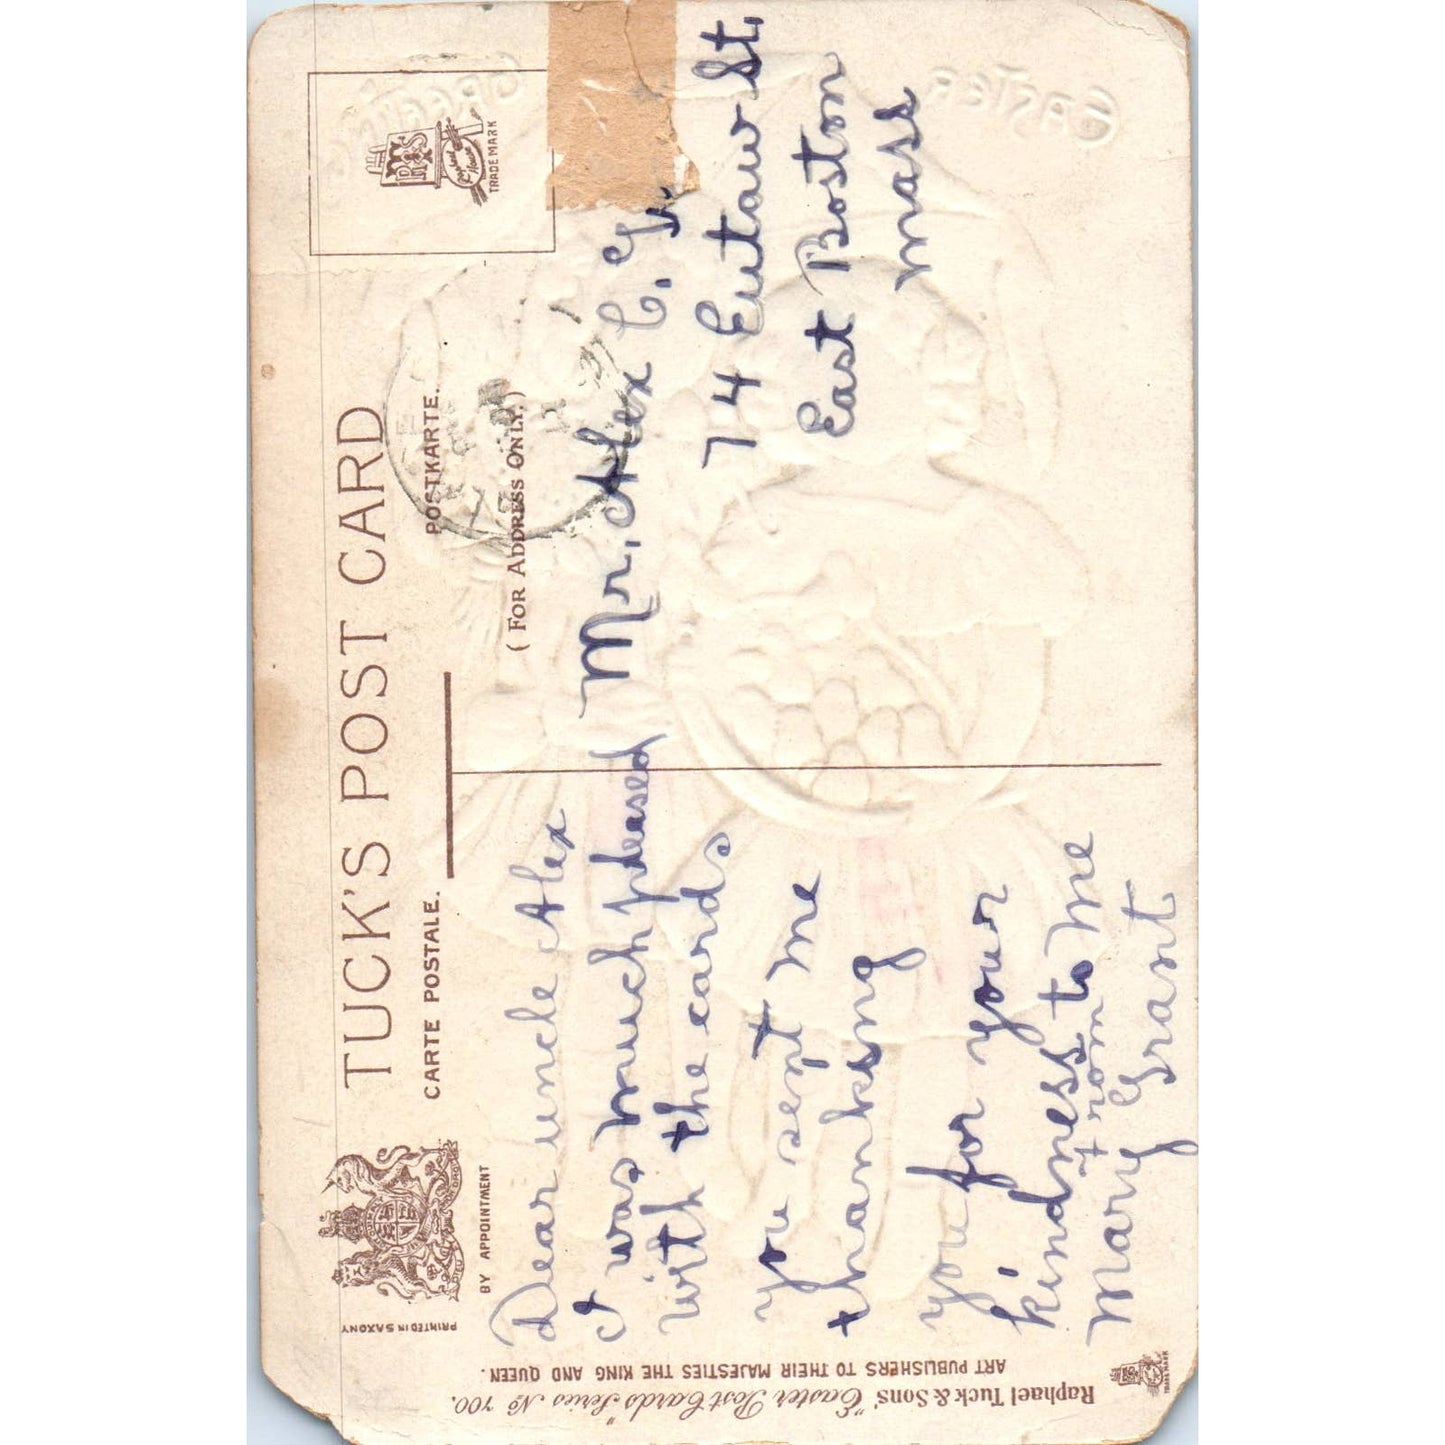 TUCK'S POST CARD
CARTE POSTALE.
POSTKARTE.
BY APPOINTMENT
(FOR ADDRESS ONLY.)
TRADE MARK
PRINTED IN SAXONY
Raphael Tuck & Sons' "Easter Post Cards" Series No 700.
ART PUBLISHERS TO THEIR MAJESTIES THE KING AND QUEEN.
TRADE MARK
Dear uncle Alex
I was much pleased
with the cards
you sent me
thanking
you for your
kindness to me
from
Mary Grant
Mr. Alex C.
74 Eutaw St,
East Boston
Mass
EASTER
GREETING